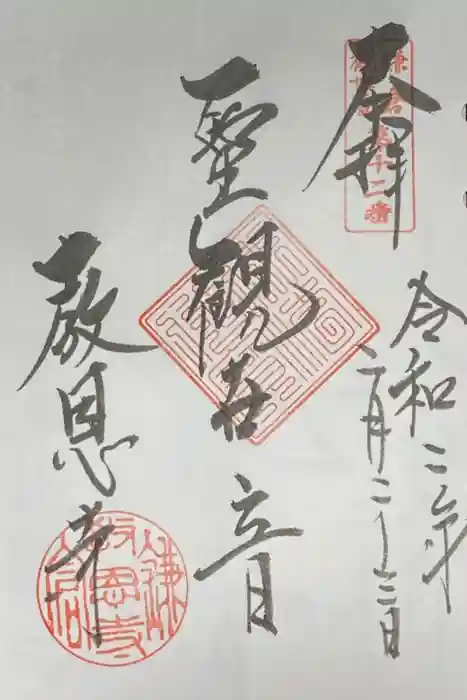 奉拝
鎌倉
第十二番
令和二年
六月二十三日
聖観世音
教恩寺